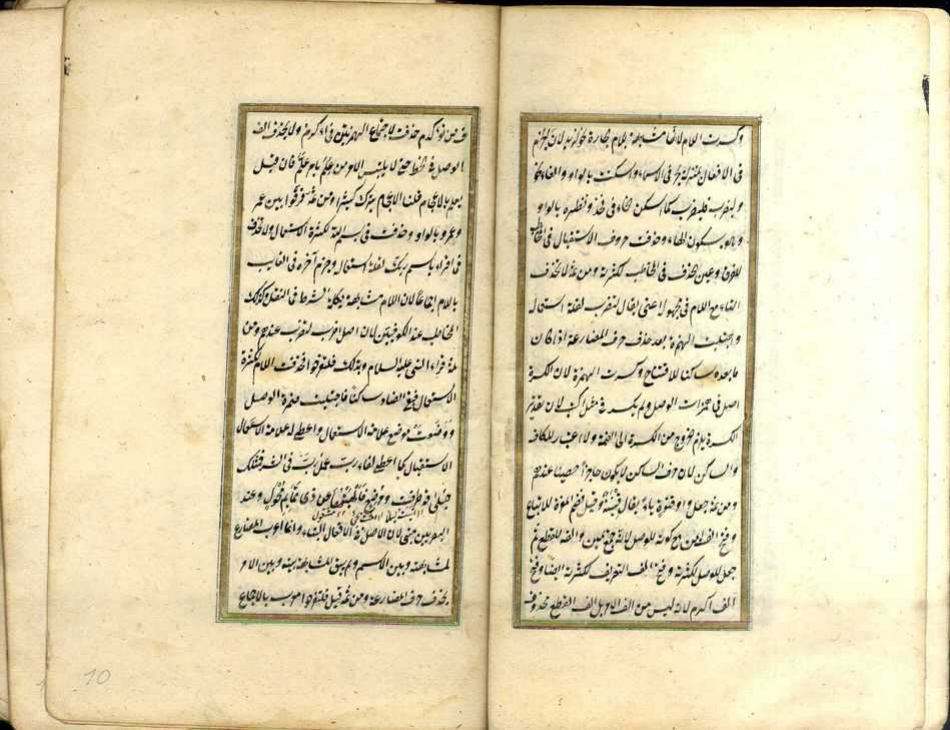 وكسرت اللام لانها مشابهة بلام الجارة لان الجزم
فى الافعال بمنزلة الجر فى الاسماء واسكنت بالواو والفاء نحو
وليضرب فليضرب كما اسكن الخاء فى فخذ ونظيره بالواو
وهو بسكون الهاء وحذفت حروف الاستقبال فى المخاطب
للفرق وعين الحذف فى المخاطب لكثرته ومن ثمة لا تحذف
اللام فى مجهوله اعنى يقال لتضرب لقلة استعماله
واجتلبت الهمزة بعد حذف حرف المضارعة اذا كان
ما بعده ساكنا للافتتاح وكسرت الهمزة لان الكسرة
اصل فى همزات الوصل ولم يكسر فى مثل اكتب لان بتقدير
الكسرة يلزم الخروج من الكسرة الى الضمة ولا اعتبار للكاف
الساكن لان حرف الساكن لا يكون حاجزا حصينا عندهم
ومن ثمة جعل واو قنوة ياء يقال قنية وقيل تضم الهمزة للاتباع
وفتح الف ايمن مع كونه للوصل لانه جمع يمين والفه للقطع ثم
جعل للوصل لكثرته وفتح الف التعريف لكثرته ايضا وفتح
الف اكرم لانه ليس من الف الامر بل الف القطع محذوف
من تؤكرم حذفت لاجتماع الهمزتين فى اؤكرم ولا تحذف الف
الوصل فى الخط حتى لا يلتبس الامر من علم بامر علّم فان قيل
يعلم بالاعجام قلنا الاعجام يترك كثيرا ومن ثمة فرقوا بين عمر
وعمرو بالواو وحذفت فى بسم الله لكثرة الاستعمال ولا تحذف
فى اقرا باسم ربك لقلة استعماله وجزم آخره فى الغائب
باللام اجماعا لان اللام مشابهة بكلمة الشرط فى النقل وكذلك
المخاطب عند الكوفيين لان اصل اضرب لتضرب عندهم ومن
ثمة قراء النبى عليه السلام وبذلك فلتفرحوا فحذفت اللام لكثرة
الاستعمال فبقى الضاد ساكنا فاجتلبت همزة الوصل
ووضعت موضع علامة الاستقبال واعطى له علامة الاستقبال
الاستقبال كما اعطى لفاء رب عمل رب فى الشعر فمثلك
حبلى قد طرقت ومرضع فالهيتها عن ذى تمائم محول وعند
البصريين مبنى لان الاصل فى الافعال البناء وانما اعرب المضارع
لمشابهة بينه وبين الاسم ولم يبق المشابهة بينه وبين الامر
بحذف حرف المضارعة ومن ثمة قيل فلتفرحوا معرب بالاجماع
10